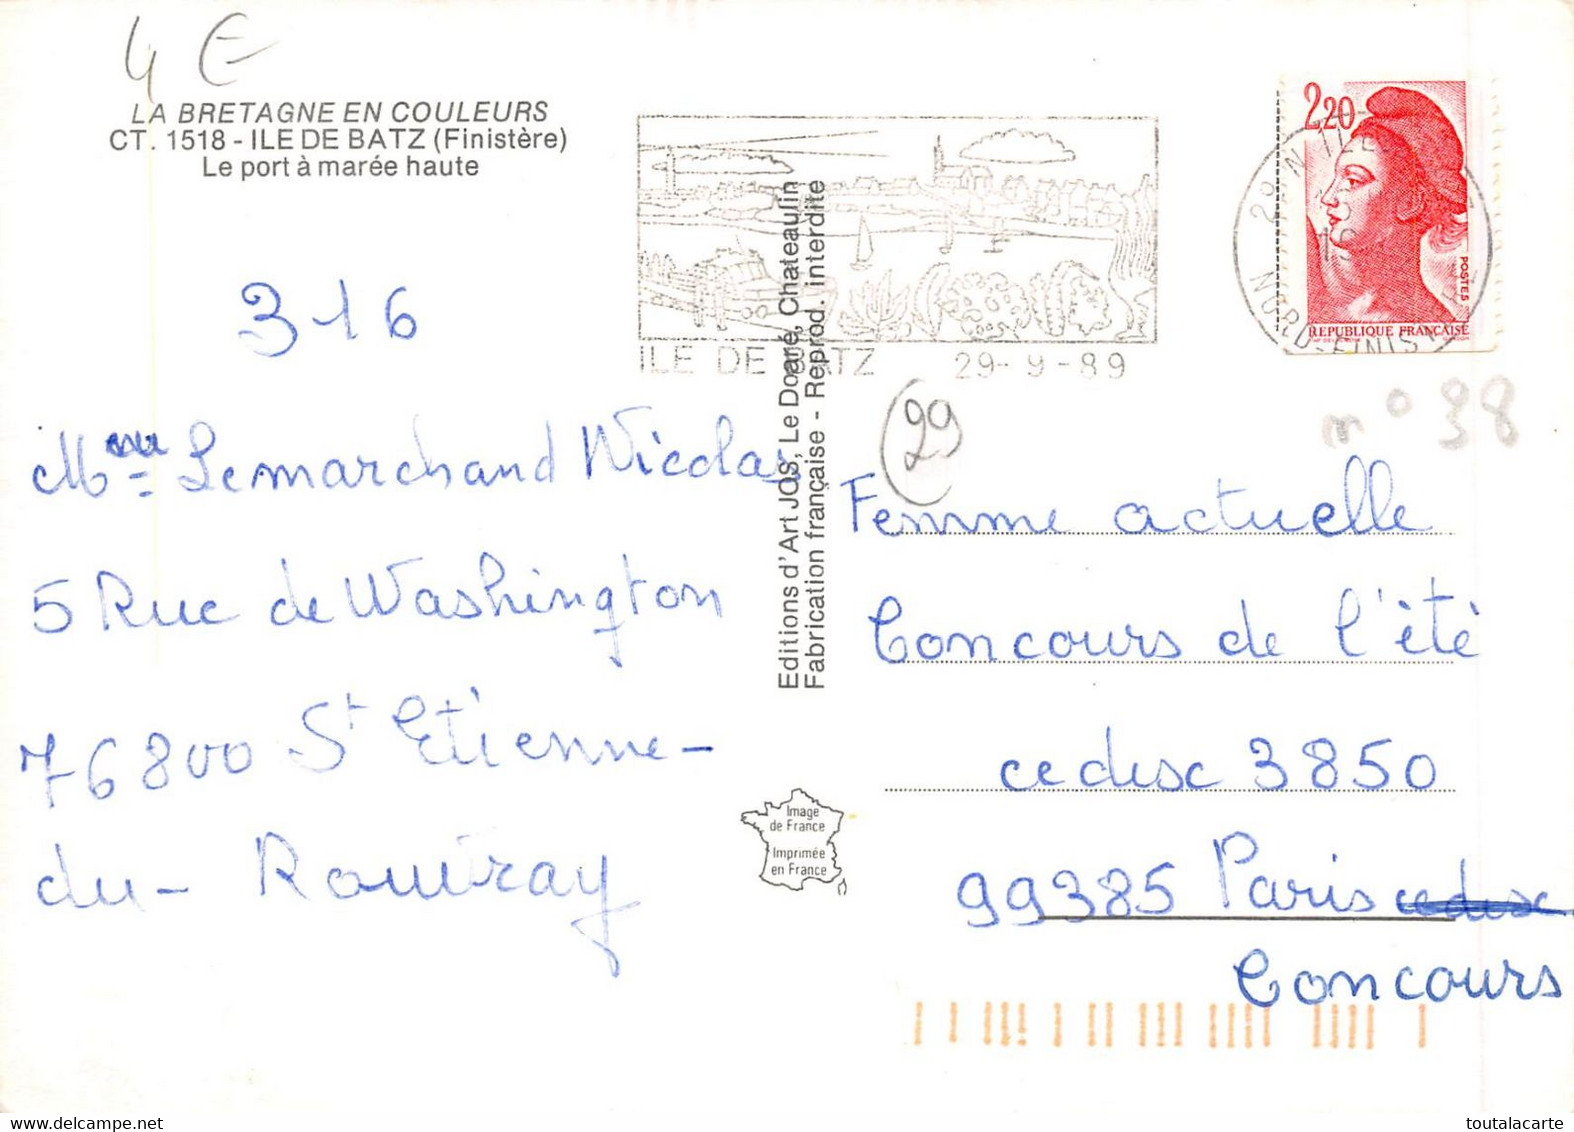 4 €
LA BRETAGNE EN COULEURS
CT. 1518 - ILE DE BATZ (Finistère)
Le port à marée haute
316
Mme Lemarchand Nicolas
5 Rue de Washington
76800 St Etienne-
du- Rouvray
Editions d'Art JOS, Le Doaré, Chateaulin
Fabrication française - Reprod. interdite
Image
de France
Imprimée
en France
ILE DE BATZ 29-9-89
2,20
POSTES
REPUBLIQUE FRANÇAISE
NORD-FINISTERE
29
n° 38
Femme actuelle
Concours de l'été
cedesc 3850
99385 Paris
Concours
toutalacarte